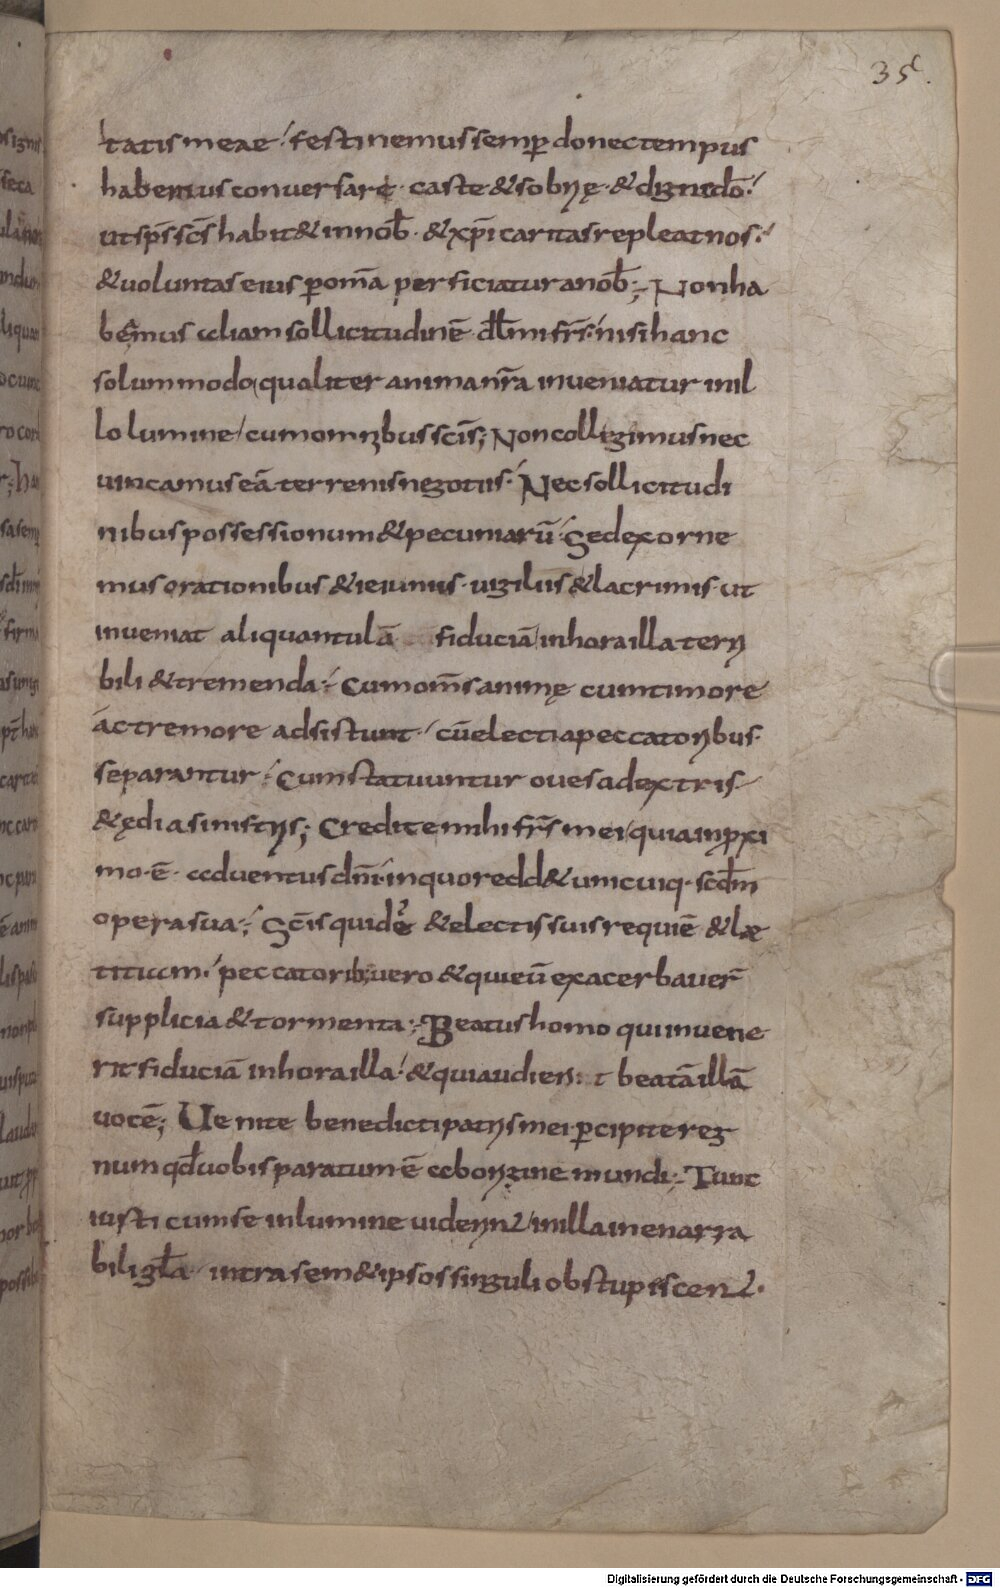 35.
tatis meae. festinemus semp̄ donec tempus
habemus conversarę. caste & sobrię. & digne dō.
ut sp̄s sc̄s habit& in nob̄. & xp̄i caritas repleat nos.
& voluntas eius p̄ om̄a perficiatur a nob̄; Non ha
bęmus aliam sollicitudinē. dl̄mi fr̄s. nisi hanc
solummodo qualiter anima nr̄a inveniatur in il
lo lumine cum omnibus sc̄is; Non colligimus nec
vincamus eā terrenis negotiis. Nec sollicitudi
nibus possessionum & pecuniarū. Sed exorne
mus orationibus & ieiuniis. vigiliis & lacrimis. ut
inveniat aliquantulā fiduciā in hora illa terri
bili & tremenda. Cum om̄s animę cum timore
ac tremore adsistunt. cū electi a peccatoribus.
separantur. Cum statuuntur oves a dextris
& ędi a sinistris; Credite mihi fr̄s mei quia in p̄xi
mo. ē. adventus dn̄i. in quo redd& unicuiq. scd̄m
opera sua; Sc̄is quidē & electis suis requiē & læ
titiam. peccatorib; vero & qui eū exacerbaver̄
supplicia & tormenta; Beatus homo qui invene
rit fiduciā in hora illa. & qui audierit beatā illā
vocē; Venite benedicti patris mei p̄cipite reg
num qd̄ vobis paratum ē ab origine mundi; Tunc
iusti cum se in lumine viderint in illa inenarra
bili gl̄a intra semet ipsos singuli obstupiscent.
Digitalisierung gefördert durch die Deutsche Forschungsgemeinschaft - DFG